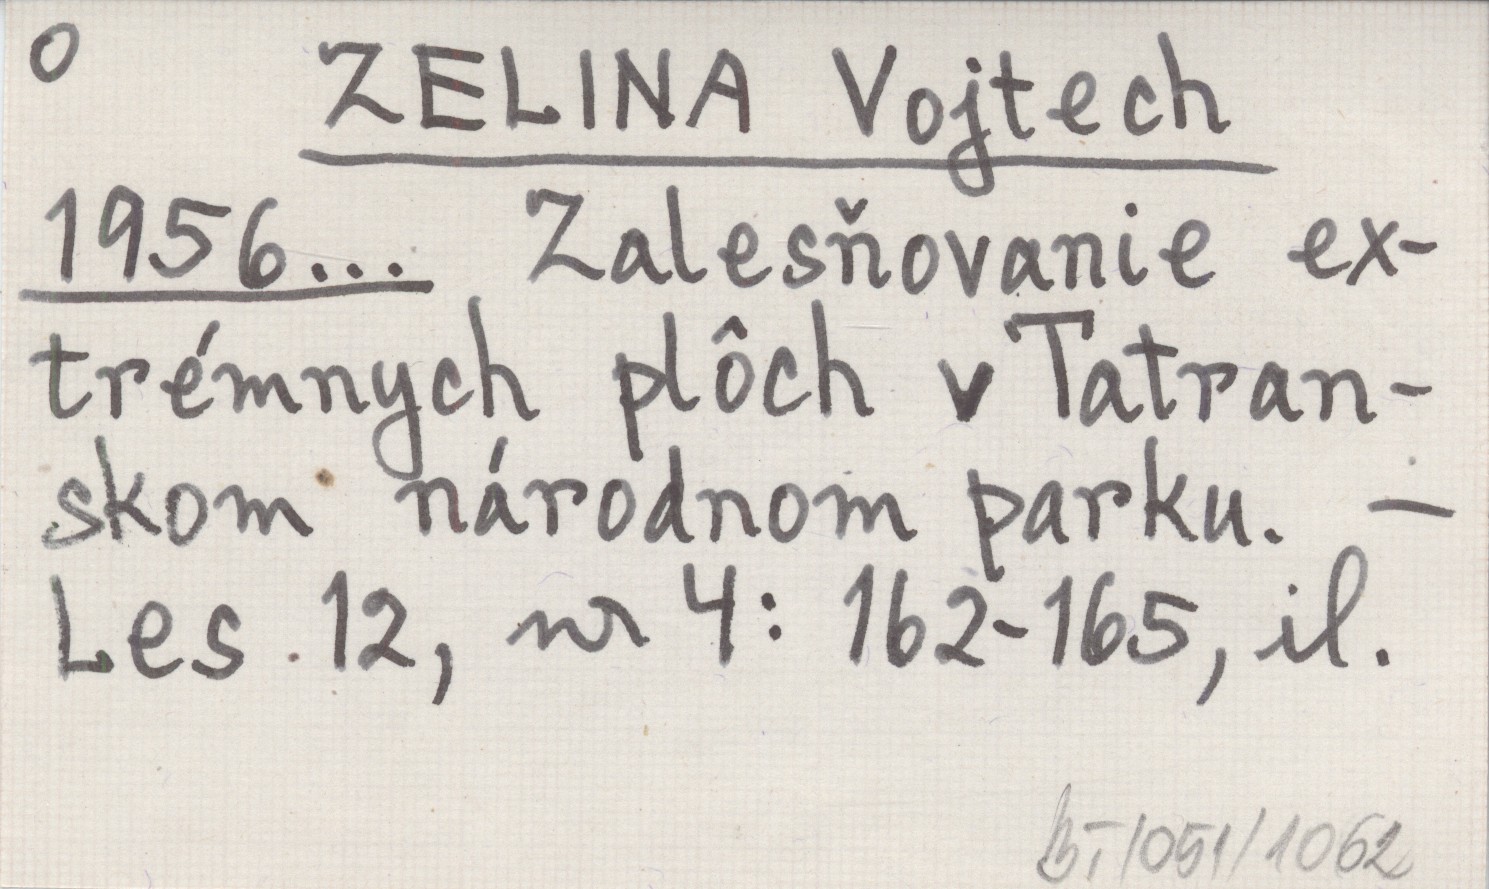 O
ZELINA Vojtech
1956... Zalesňovanie ex-
trémnych plôch v Tatran-
skom národnom parku. —
Les 12, nr 4: 162-165, il.
/051/1062